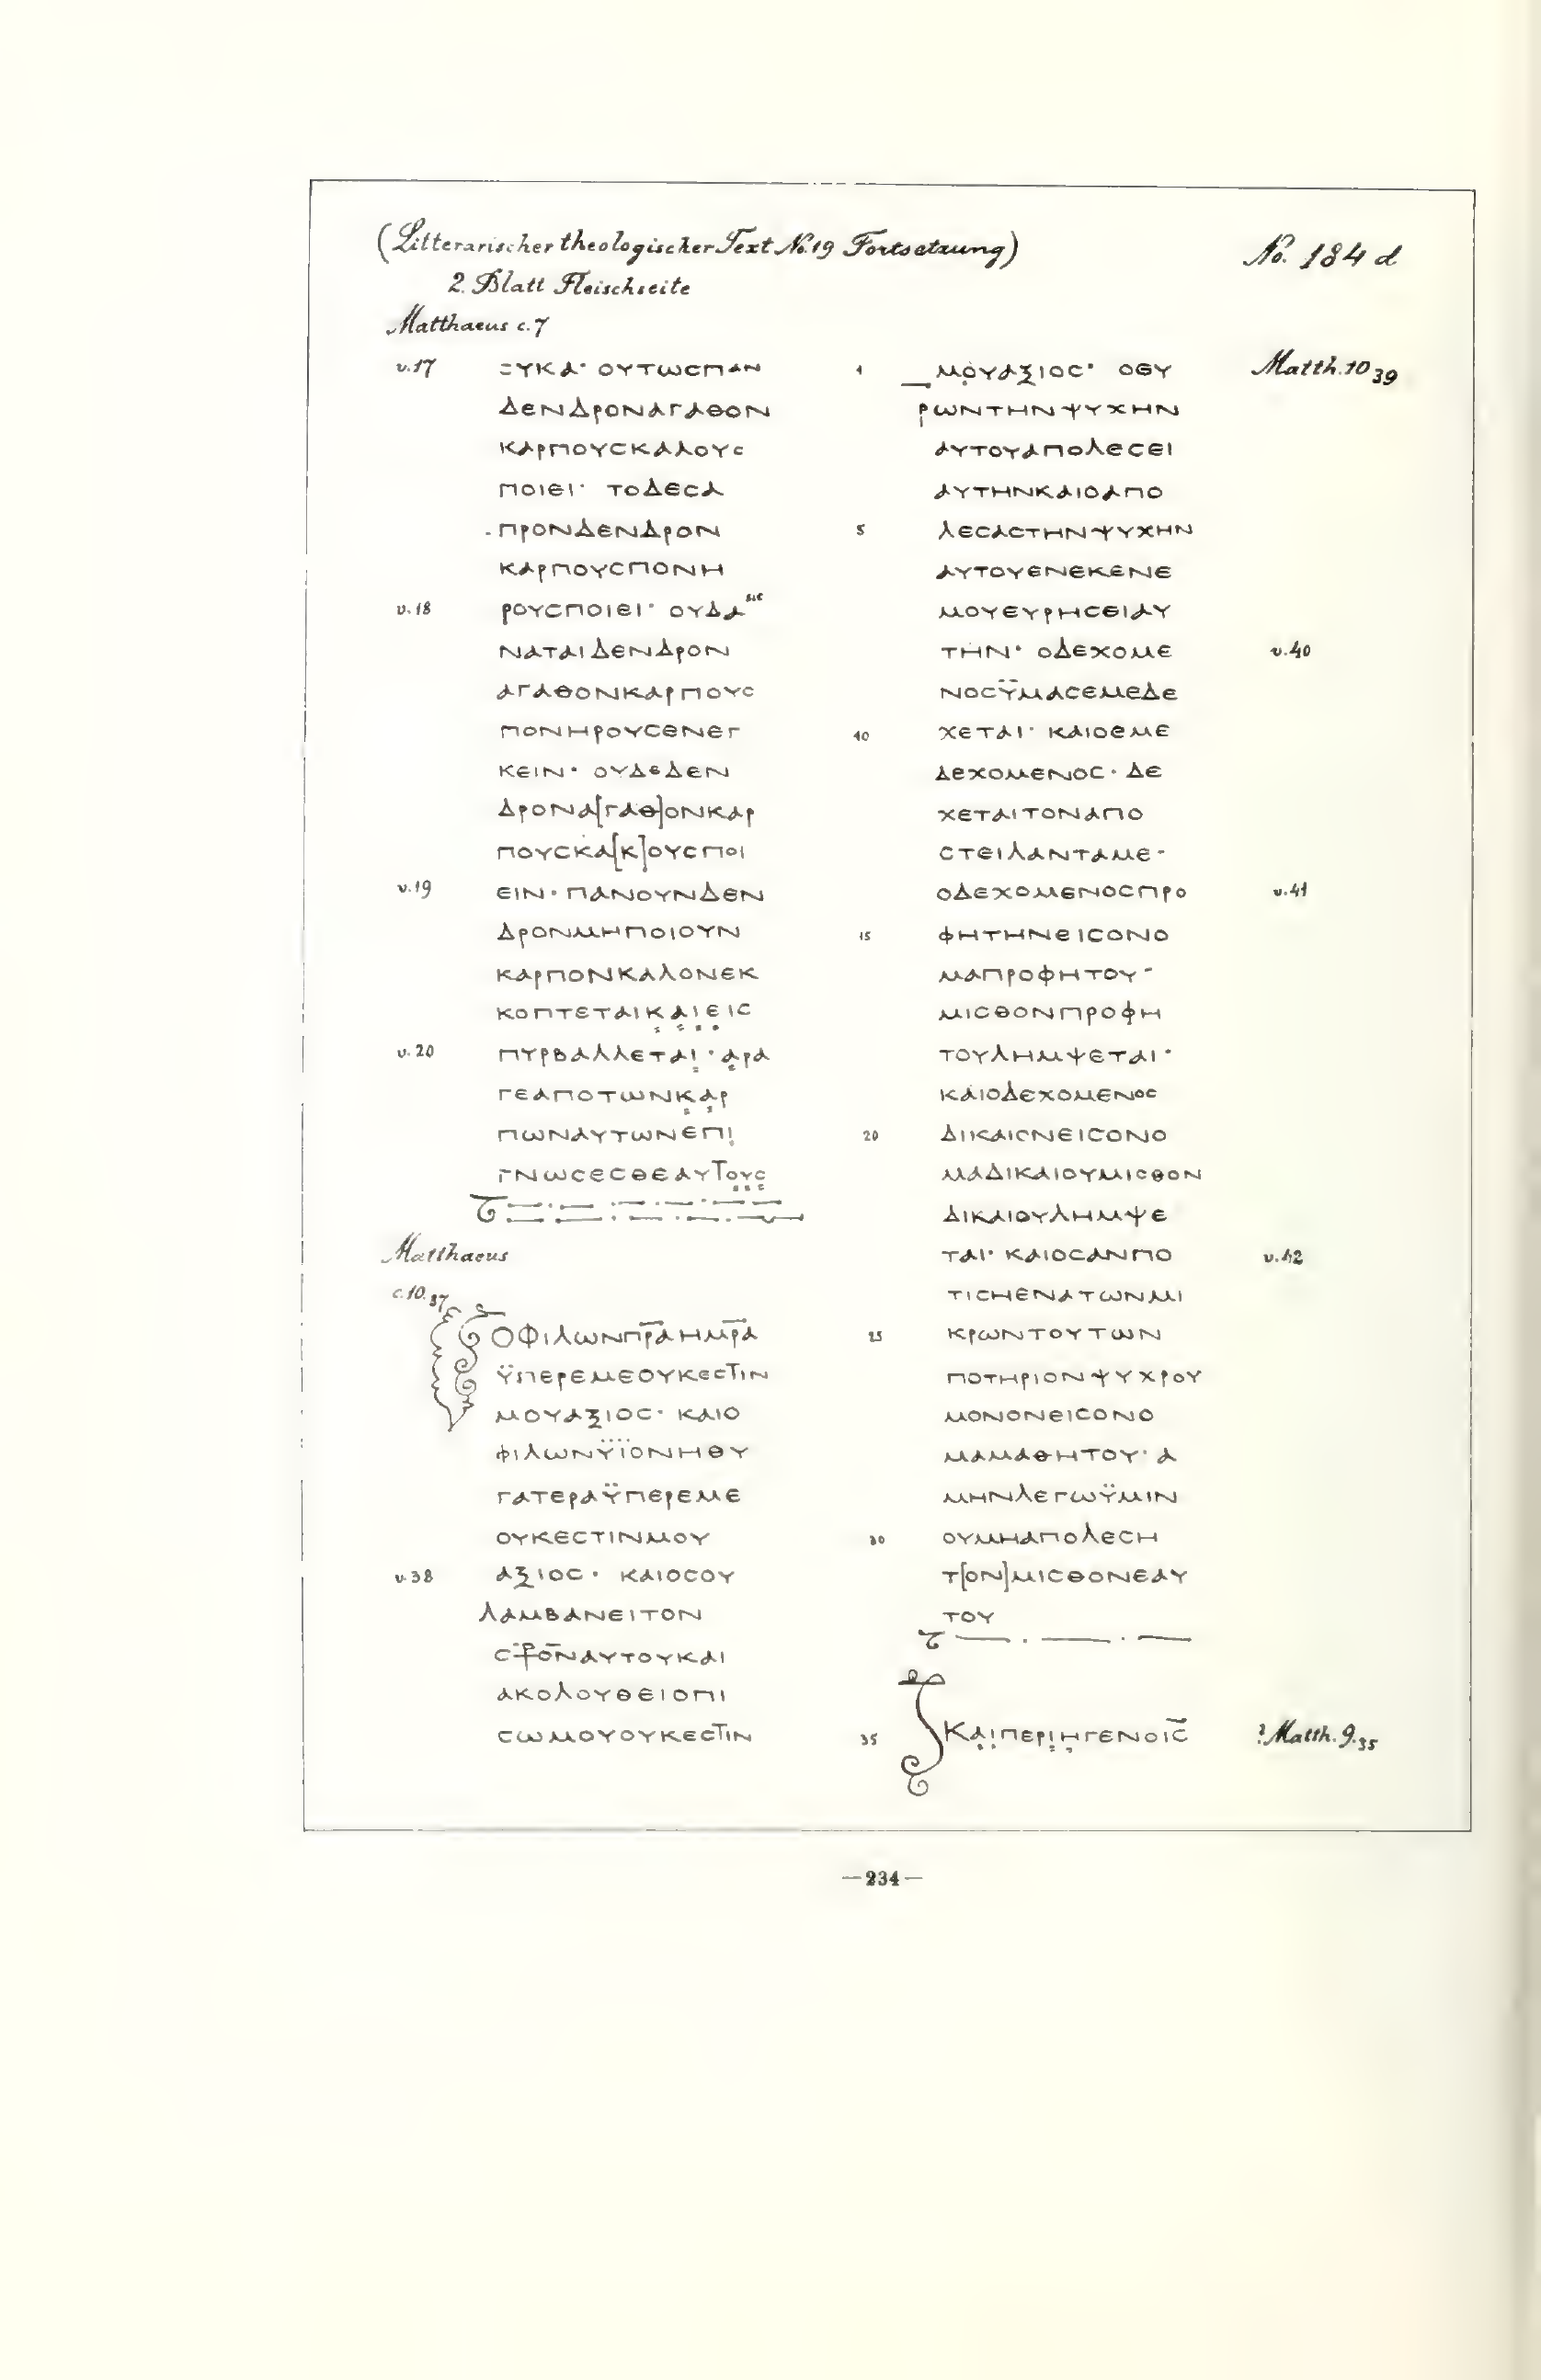 (Litterarischer theologischer Text No. 19 Fortsetzung)
No. 184 d
2. Blatt Fleischseite
Matthaeus c. 7
v. 17 ΞΥΚΑ· ΟΥΤΩϹΠΑΝ
ΔΕΝΔΡΟΝΑΓΑΘΟΝ
ΚΑΡΠΟΥϹΚΑΛΟΥϹ
ΠΟΙΕΙ· ΤΟΔΕϹΑ
ΠΡΟΝΔΕΝΔΡΟΝ
ΚΑΡΠΟΥϹΠΟΝΗ
v. 18 ΡΟΥϹΠΟΙΕΙ· ΟΥΔΑ sic
ΝΑΤΑΙΔΕΝΔΡΟΝ
ΑΓΑΘΟΝΚΑΡΠΟΥϹ
ΠΟΝΗΡΟΥϹΕΝΕΓ
ΚΕΙΝ· ΟΥΔΕΔΕΝ
ΔΡΟΝΑ[ΓΑΘ]ΟΝΚΑΡ
ΠΟΥϹΚΑ[Κ]ΟΥϹΠΟΙ
v. 19 ΕΙΝ· ΠΑΝΟΥΝΔΕΝ
ΔΡΟΝΜΗΠΟΙΟΥΝ
ΚΑΡΠΟΝΚΑΛΟΝΕΚ
ΚΟΠΤΕΤΑΙΚ̣Α̣Ι̣Ε̣ΙϹ
v. 20 ΠΥΡΒΑΛΛΕΤΑΙ̣· Α̣ΡΑ
ΓΕΑΠΟΤΩΝΚ̣Α̣Ρ
ΠΩΝΑΥΤΩΝΕΠΙ̣
ΓΝΩϹΕϹΘΕΑΥΤΟ̣Υ̣Ϲ̣
Matthaeus
c. 10. 37
ΟΦΙΛΩΝΠ̅Ρ̅Α̅ΗΜ̅Ρ̅Α̅
ΫΠΕΡΕΜΕΟΥΚΕϹΤΙΝ
ΜΟΥΑΞΙΟϹ· ΚΑΙΟ
ΦΙΛΩΝΫΪΟΝΗΘΥ
ΓΑΤΕΡΑΫΠΕΡΕΜΕ
ΟΥΚΕϹΤΙΝΜΟΥ
v. 38 ΑΞΙΟϹ· ΚΑΙΟϹΟΥ
ΛΑΜΒΑΝΕΙΤΟΝ
Ϲ⳨ΟΝΑΥΤΟΥΚΑΙ
ΑΚΟΛΟΥΘΕΙΟΠΙ
ϹΩΜΟΥΟΥΚΕϹΤΙΝ
1 ΜΟΥΑΞΙΟϹ· ΟΕΥ Matth. 10 39
ΡΩΝΤΗΝΨΥΧΗΝ
ΑΥΤΟΥΑΠΟΛΕϹΕΙ
ΑΥΤΗΝΚΑΙΟΑΠΟ
5 ΛΕϹΑϹΤΗΝΨΥΧΗΝ
ΑΥΤΟΥΕΝΕΚΕΝΕ
ΜΟΥΕΥΡΗϹΕΙΑΥ
ΤΗΝ· ΟΔΕΧΟΜΕ v. 40
ΝΟϹΫΜΑϹΕΜΕΔΕ
40 ΧΕΤΑΙ· ΚΑΙΟΕΜΕ
ΔΕΧΟΜΕΝΟϹ· ΔΕ
ΧΕΤΑΙΤΟΝΑΠΟ
ϹΤΕΙΛΑΝΤΑΜΕ·
ΟΔΕΧΟΜΕΝΟϹΠΡΟ v. 41
15 ΦΗΤΗΝΕΙϹΟΝΟ
ΜΑΠΡΟΦΗΤΟΥ·
ΜΙϹΘΟΝΠΡΟΦΗ
ΤΟΥΛΗΜΨΕΤΑΙ·
ΚΑΙΟΔΕΧΟΜΕΝΟϹ
20 ΔΙΚΑΙΟΝΕΙϹΟΝΟ
ΜΑΔΙΚΑΙΟΥΜΙϹΘΟΝ
ΔΙΚΑΙΟΥΛΗΜΨΕ
ΤΑΙ· ΚΑΙΟϹΑΝΠΟ v. 42
ΤΙϹΗΕΝΑΤΩΝΜΙ
25 ΚΡΩΝΤΟΥΤΩΝ
ΠΟΤΗΡΙΟΝΨΥΧΡΟΥ
ΜΟΝΟΝΕΙϹΟΝΟ
ΜΑΜΑΘΗΤΟΥ· Α
ΜΗΝΛΕΓΩΫΜΙΝ
30 ΟΥΜΗΑΠΟΛΕϹΗ
Τ[ΟΝ]ΜΙϹΘΟΝΕΑΥ
ΤΟΥ
35 ΚΑ̣Ι̣ΠΕΡΙ̣Η̣ΓΕΝΟΙ̅Ϲ̅ ? Matth. 9. 35
—234—